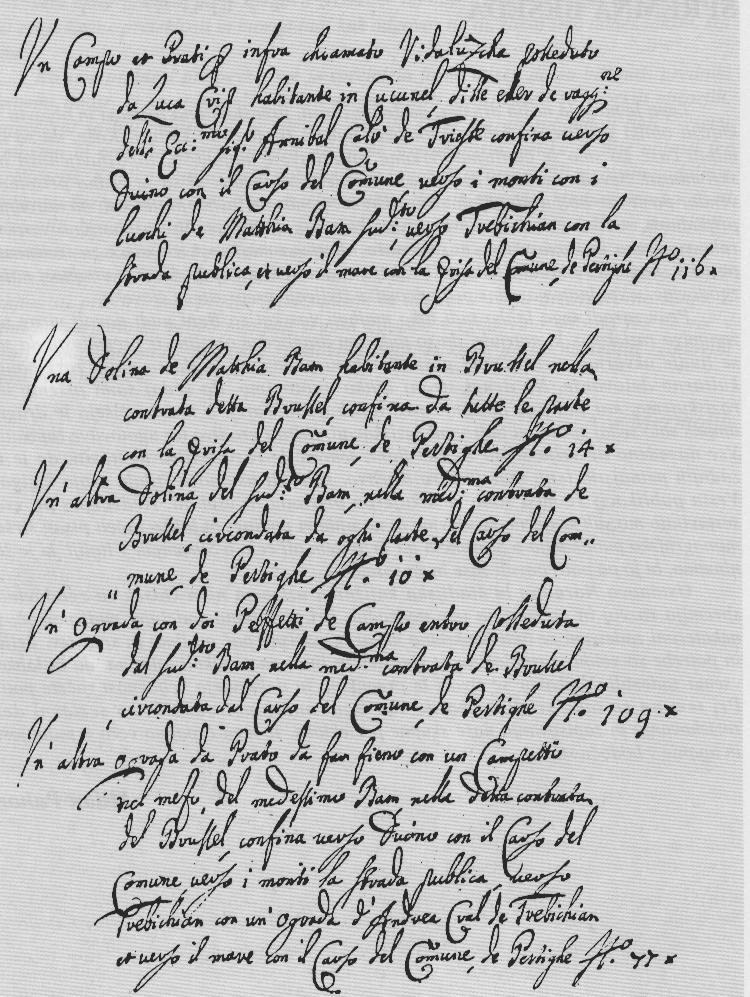 Un Campo et Prati infra chiamato Vidaluzcha posseduto
da Luca habitante in Cucunel, disse esser de ragg:ne
dell: Ecc:mo sig:r Annibal Calò de Trieste confina verso
Duino con il Carso del Comune verso i monti con i
luochi de Matthia Bam sud:tto verso Trebichian con la
strada publica, et verso il mare con la del Comune, de Persighe No: 116 x
Una Dolina de Matthia Bam habitante in Brussel nella
contrata detta Brussel, confina da tutte le parte
con la del Comune, de Persighe No: 14 x
Un' altra Dolina del sud:to Bam, nella med:ma contrata de
Brussel, circondata da ogni parte, del Carso del Com„
mune, de Persighe No: 10 x
Un' Ograda con doi Pezzetti de Campo entro posseduta
dal sud:tto Bam, nella med:ma contrata de Brussel
circondata dal Carso del Comune, de Persighe No: 109 x
Un' altra ograda da Prato da fan fieno con un Campetto
nel mezo, del medessimo Bam nella detta contrata
del Brussel, confina verso Duino con il Carso del
Comune verso i monti la strada publica, verso
Trebichian con un' ograda d'Andrea Cral de Trebichian
et verso il mare con il Carso del Comune, de Persighe No: 77 x